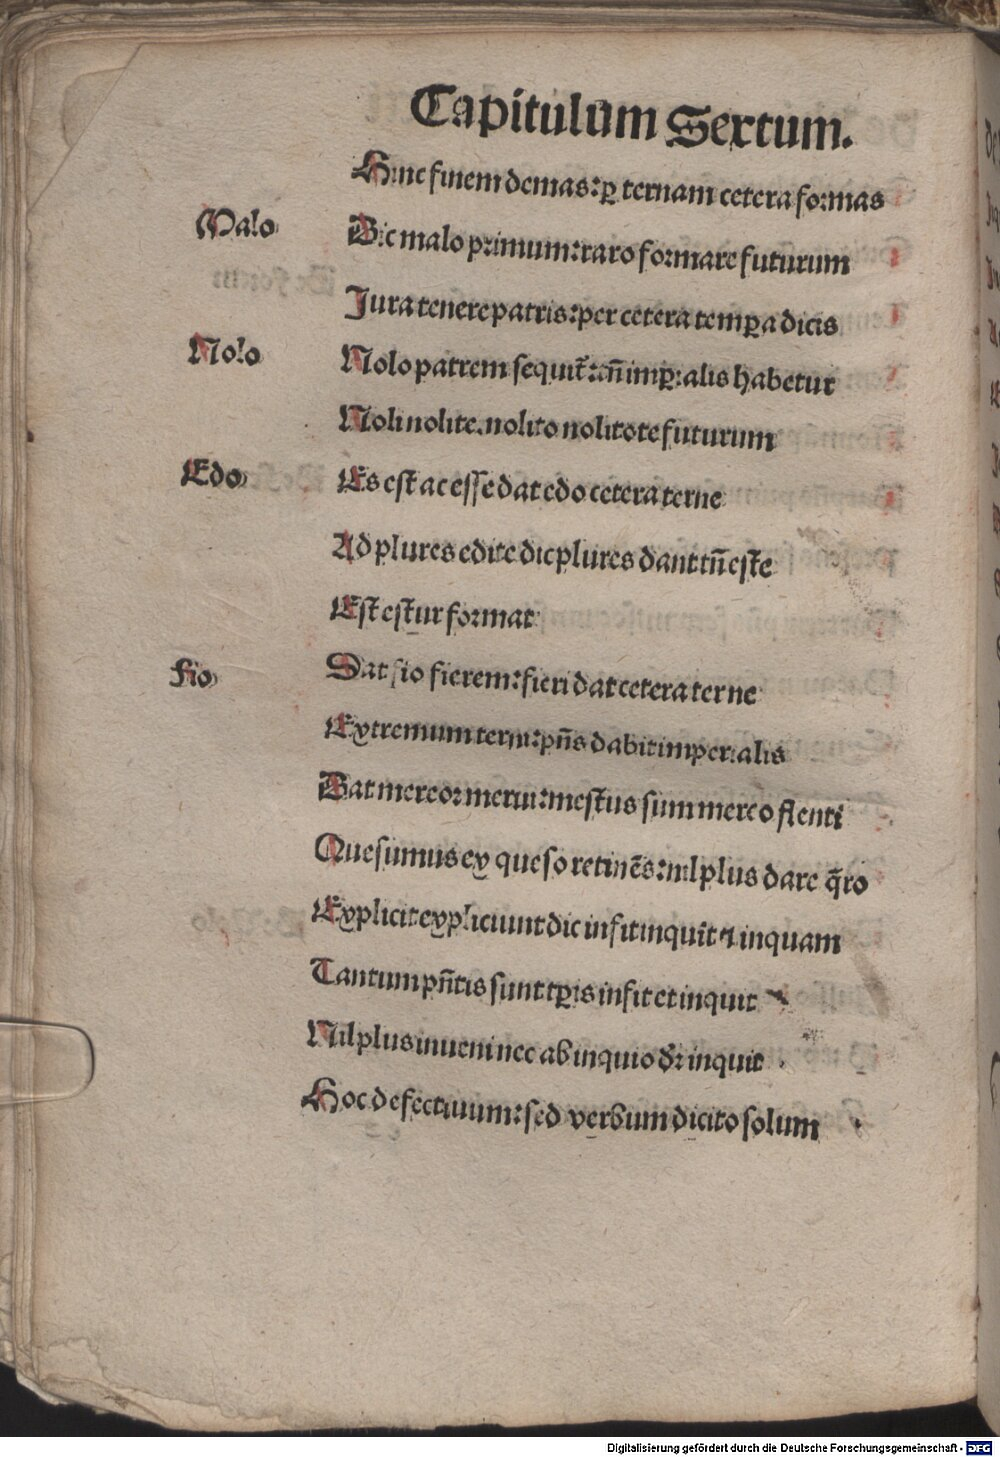 Capitulum Sextum.
Hinc finem demas: ꝑ ternam cetera formas
Malo
Sic malo primum: raro formare futurum
Jura tenere patris: per cetera temꝑa dicis
Nolo
Nolo patrem sequit̄: tn̄ imꝑialis habetur
Noli nolite. nolito nolitote futurum
Edo
Es est ac esse dat edo cetera terne
Ad plures edite dic plures dant tn̄ este
Est estur format
Fio
Dat fio fierem: fieri dat cetera terne
Extremum terni: pn̄s dabit imperialis
Dat mereor: merui: mestus sum mereo flenti
Quesumus ex queso retinēs: nil plus dare q̄ro
Explicit expliciunt dic infit inquit ⁊ inquam
Tantum pn̄tis sunt tꝑis infit et inquit
Nil plus inueni nec ab inquio dr̄ inquit
Hoc defectiuum: sed verbum dicito solum
Digitalisierung gefördert durch die Deutsche Forschungsgemeinschaft - DFG